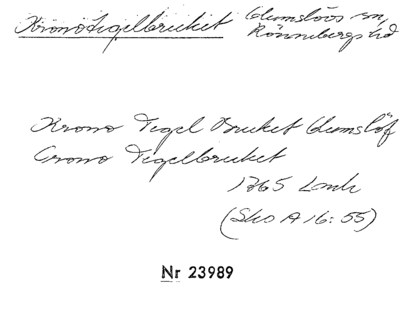 Kronotegelbruket Glumslövs sn,
Rönnebergs hd
Krono Tegel Bruket Glumslöf
Crono Tegelbruket
1765 Lmh
(Sko A 16:55)
Nr 23989